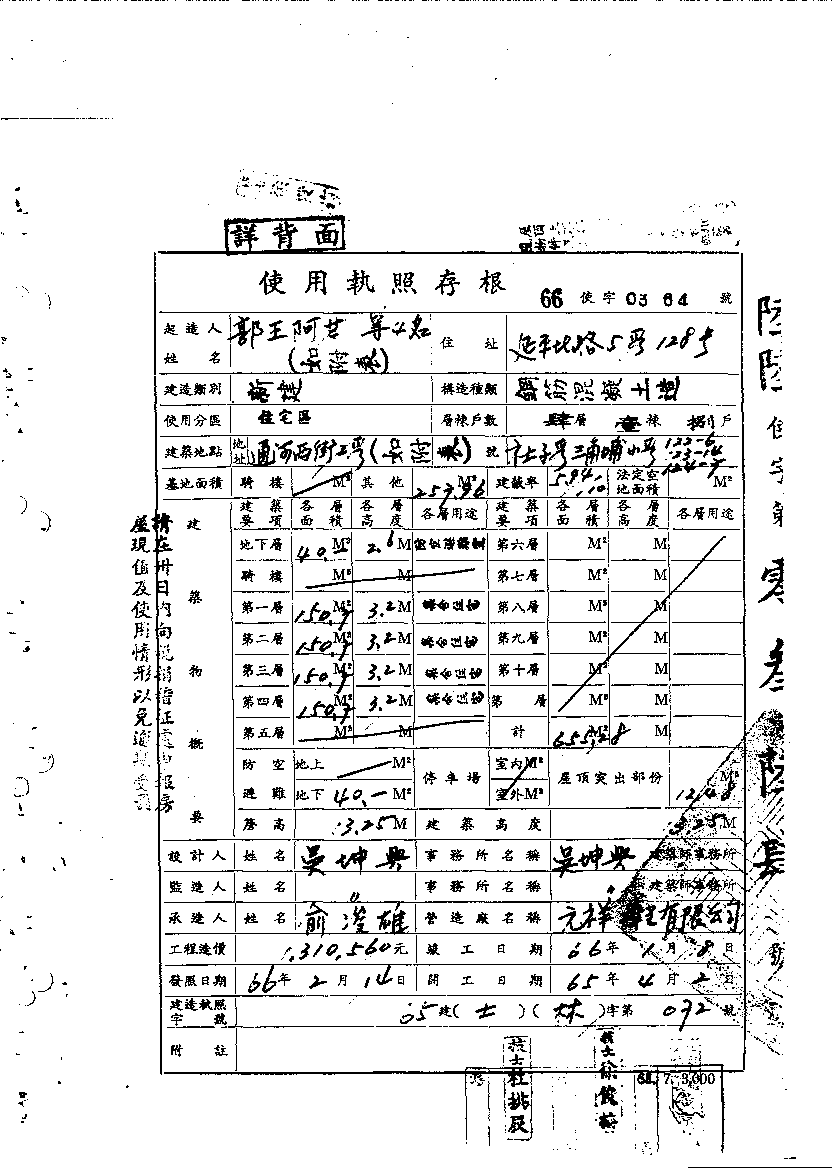 詳背面
使用執照存根
66 使字 0364 號
起造人姓名 郭王阿甘 等4名 (如附表) 住址 延平北路5段128号
建造類別 新建 構造種類 鋼筋混凝土造
使用分區 住宅區 層棟戶數 肆層 壹棟 捌戶
建築地點 地址 通河西街2段(如附表)號 122-6 123-14 124-7
基地面積 騎樓 M² 其他 257.96 M² 建蔽率 法定空地面積 M²
建築要項 各層面積 各層高度 各層用途 建築要項 各層面積 各層高度 各層用途
建築物概要
地下層 40.- M² 2.6 M 第六層 M² M
騎樓 M² M 第七層 M² M
第一層 150.7 M² 3.2 M 集合住宅 第八層 M² M
第二層 150.7 M² 3.2 M 集合住宅 第九層 M² M
第三層 150.7 M² 3.2 M 集合住宅 第十層 M² M
第四層 150.7 M² 3.2 M 集合住宅 第 層 M² M
第五層 M² M 計 655.28 M²
防空避難 地上 M² 停車場 室內M² 屋頂突出部份 12.48 M²
地下 40.- M² 室外M²
簷高 13.25 M 建築高度 13.25 M
設計人 姓名 吳坤興 事務所名稱 吳坤興 建築師事務所
監造人 姓名 〃 事務所名稱 〃 建築師事務所
承造人 姓名 俞濴雄 營造廠名稱 有限公司
工程造價 1,310,560元 竣工日期 66年1月8日
發照日期 66年2月14日 開工日期 65年4月2日
建造執照字號 65建(士)(林)字第072號
附註
請在卅日內向稅捐稽征處申報房
屋現值及使用情形以免逾期受罰
陸陸使字第零叁陸 號
技士杜挑辰
技士徐
66. 7. 3,000